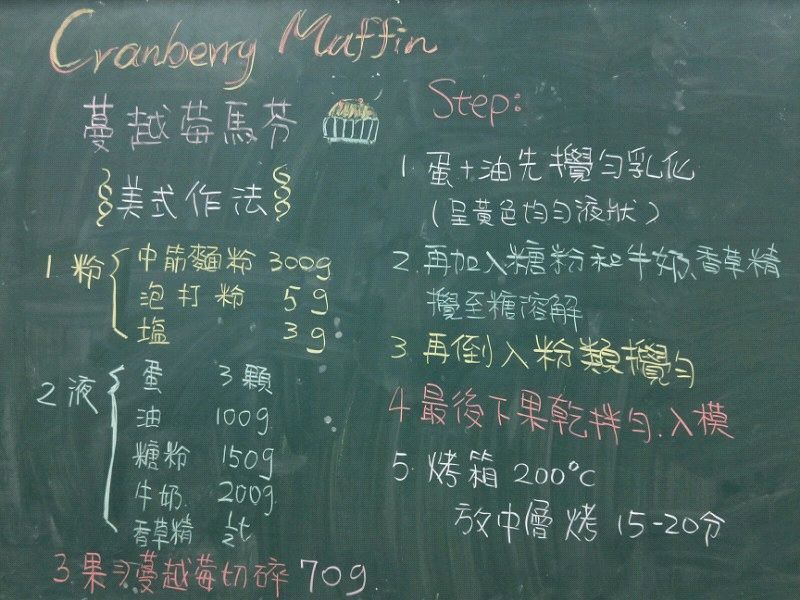 Cranberry Muffin
蔓越莓馬芬
美式作法
1. 粉
中筋麵粉 300g
泡打粉 5g
塩 3g
2 液
蛋 3顆
油 100g
糖粉 150g
牛奶. 200g
香草精 1/2t
3.果 蔓越莓切碎 70g
Step:
1. 蛋+油先攪勻乳化
(呈黃色均勻液狀)
2.再加入糖粉和牛奶、香草精
攪至糖溶解
3.再倒入粉類攪勻
4最後下果乾拌勻.入模
5.烤箱 200°C
放中層烤 15-20分